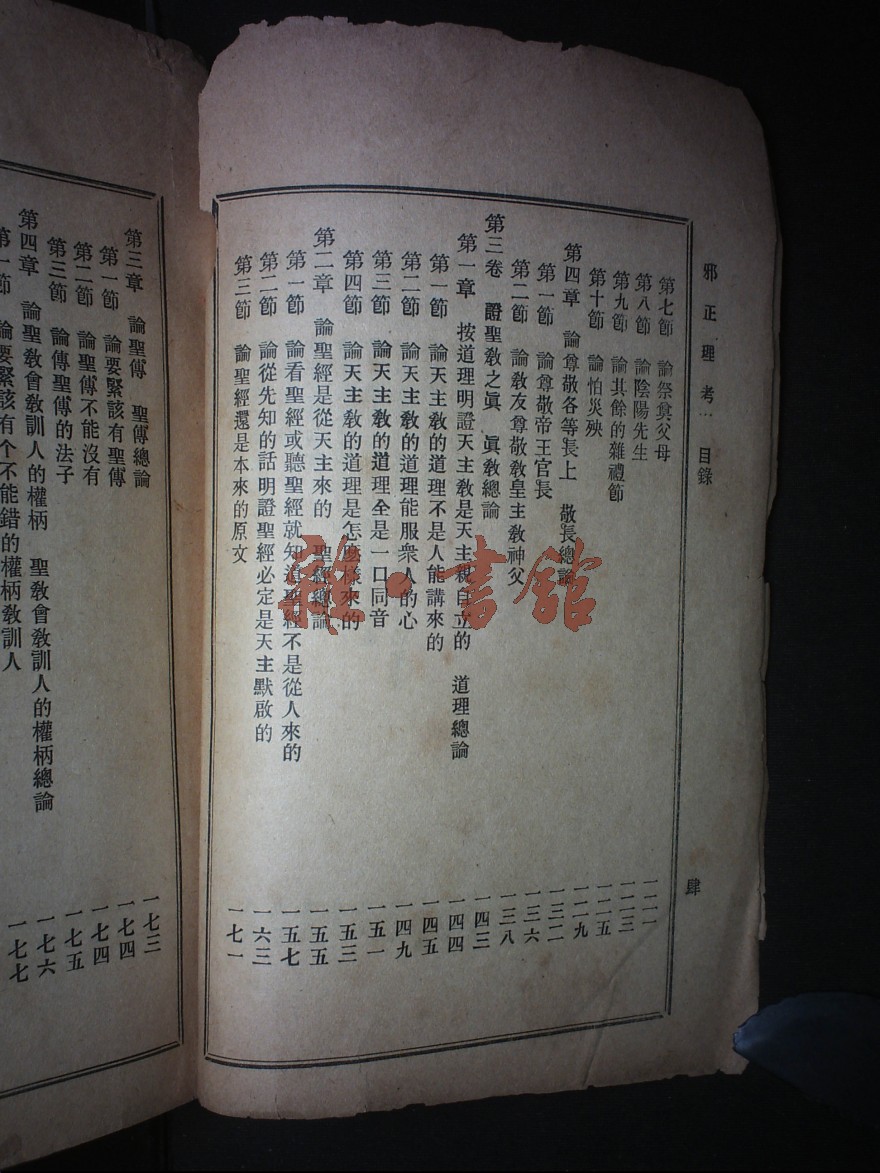 邪正理考 目錄 肆
第七節 論祭奠父母 一二一
第八節 論陰陽先生 一二三
第九節 論其餘的雜禮節 一二五
第十節 論怕災殃 一二九
第四章 論尊敬各等長上 敬長總論 一三二
第一節 論尊敬帝王官長 一三六
第二節 論教友尊敬教皇主教神父 一三八
第三卷 證聖教之眞 眞教總論 一四三
第一章 按道理明證天主教是天主親自立的 道理總論 一四四
第一節 論天主教的道理不是人能講來的 一四五
第二節 論天主教的道理能服衆人的心 一四九
第三節 論天主教的道理全是一口同音 一五一
第四節 論天主教的道理是怎麽樣來的 一五三
第二章 論聖經是從天主來的 聖經總論 一五五
第一節 論看聖經或聽聖經就知道聖經不是從人來的 一五七
第二節 論從先知的話明證聖經必定是天主默啟的 一六三
第三節 論聖經還是本來的原文 一七一
第三章 論聖傳 聖傳總論 一七三
第一節 論要緊該有聖傳 一七四
第二節 論聖傳不能沒有 一七四
第三節 論傳聖傳的法子 一七五
第四章 論聖教會教訓人的權柄 聖教會教訓人的權柄總論 一七六
第一節 論要緊該有个不能錯的權柄教訓人 一七七
雜·書館